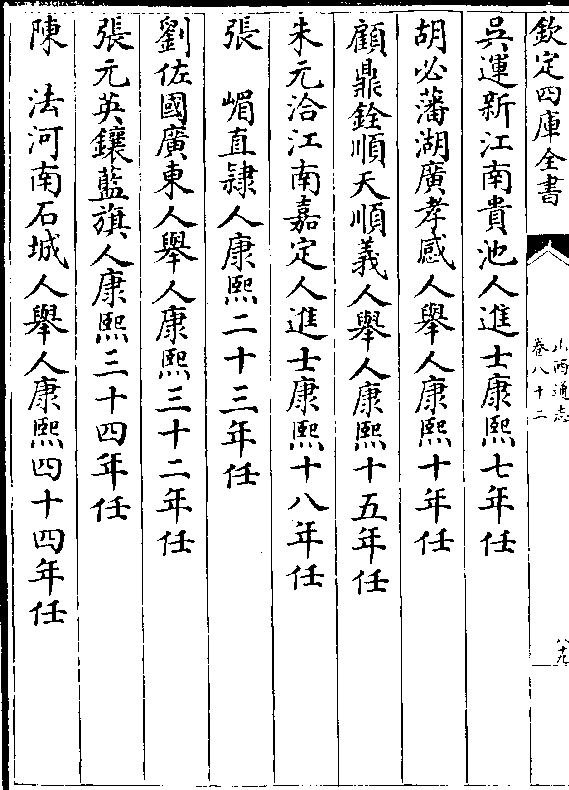 欽定四庫全書
山西通志
卷八十二
八十九
吳運新江南貴池人進士康熙七年任
胡必蕃湖廣孝感人舉人康熙十年任
顧鼎銓順天順義人舉人康熙十五年任
朱元洽江南嘉定人進士康熙十八年任
張　嵋直隸人康熙二十三年任
劉佐國廣東人舉人康熙三十二年任
張元英鑲藍旗人康熙三十四年任
陳　法河南石城人舉人康熙四十四年任